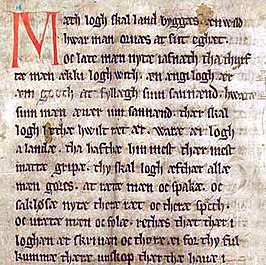 Mæth logh skal land byggas. æn wild
hwar man oruæs at sit eghæt.
oc late mæn nyte iafnæth tha thurf
tæ mæn ækki logh with. æn ængi logh ær
æm goth at fyllægh sum sannænd. hwaræ
sum man æuær um sannænd. thær skal
logh letæ hwilt ræt ær. waræ æi logh
a landæ. tha hafthæ hin mest thær mest
mattæ gripæ. thy skal logh æfthær allæ
mæn gøres. at rætæ mæn oc spakæ. oc
saklosæ nytæ theræ ræt oc theræ spæcth.
oc urætæ mæn oc folæ. rethæs thæt thær i
loghæn ær skriuæn oc thoræ æi for thy ful
kummæ theræ unskop thær the hauæ i